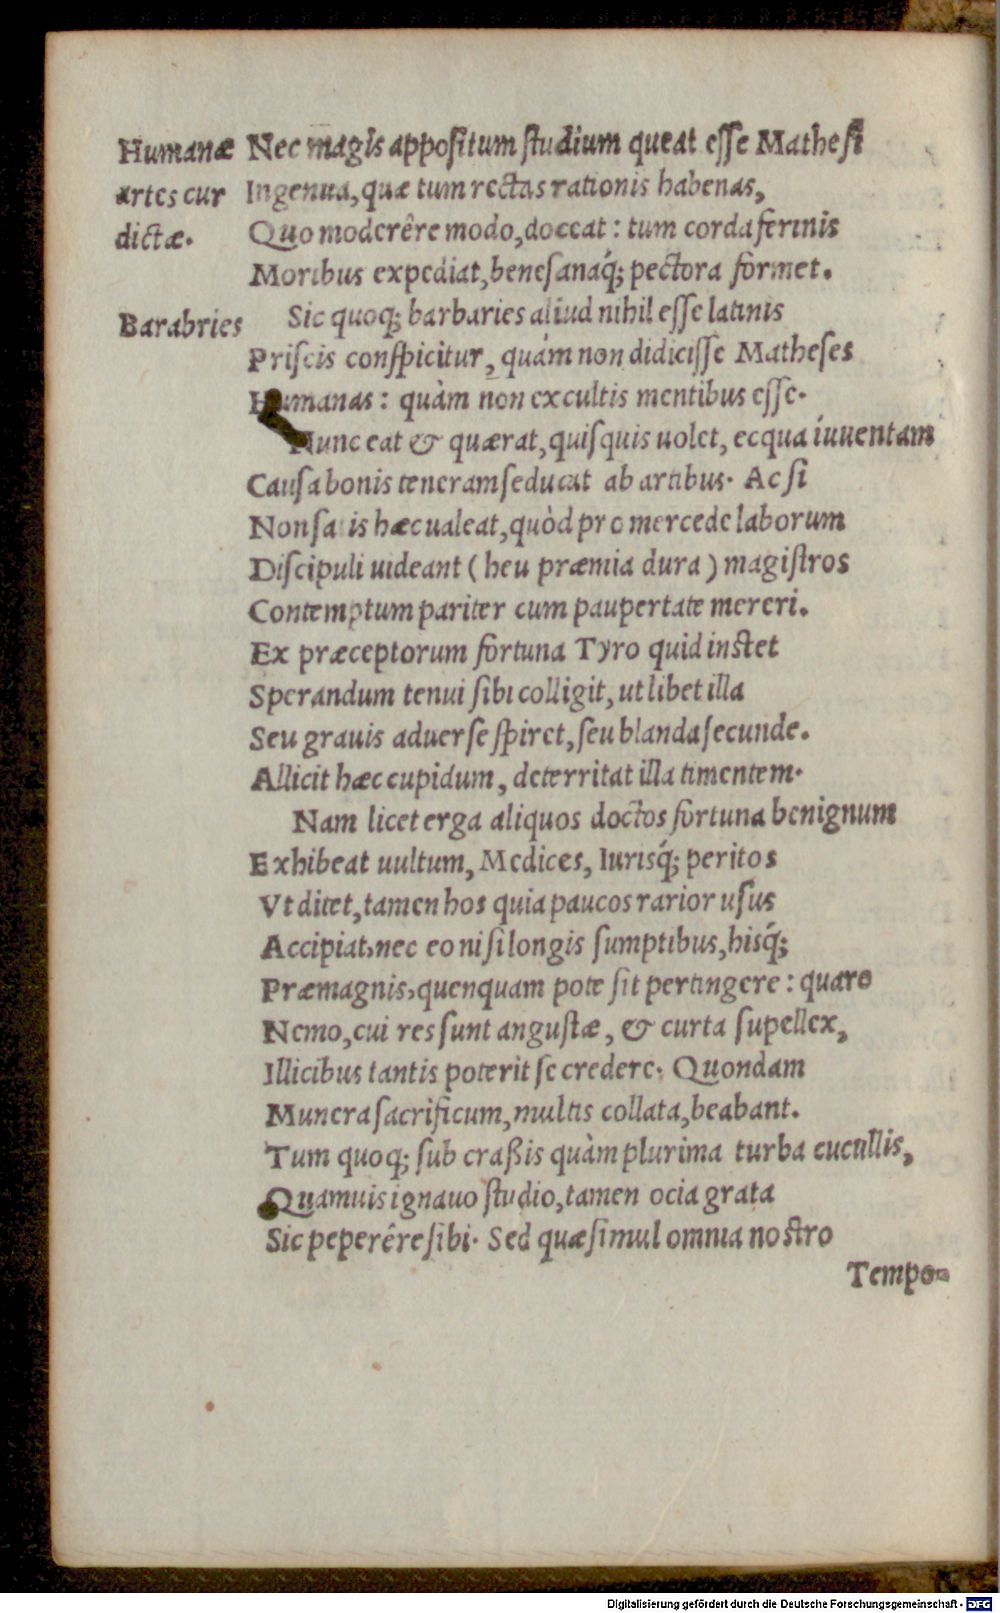 Humanæ
artes cur
dictæ.
Nec magis appositum studium queat esse Mathesi
Ingenua, quæ tum rectas rationis habenas,
Quo moderêre modo, doceat: tum corda ferinis
Moribus expediat, bene sanaq́; pectora formet.
Barabries
Sic quoq; barbaries aliud nihil esse latinis
Priscis conspicitur, quàm non didicisse Matheses
Humanas: quàm non excultis mentibus esse.
Nunc eat & quærat, quisquis uolet, ecqua iuuentam
Causa bonis teneram seducat ab artibus. Ac si
Non satis hæc ualeat, quòd pro mercede laborum
Discipuli uideant (heu præmia dura) magistros
Contemptum pariter cum paupertate mereri.
Ex præceptorum fortuna Tyro quid instet
Sperandum tenui sibi colligit, ut libet illa
Seu grauis aduerse spiret, seu blanda secunde.
Allicit hæc cupidum, deterritat illa timentem.
Nam licet erga aliquos doctos fortuna benignum
Exhibeat uultum, Medices, Iurisq́; peritos
Vt ditet, tamen hos quia paucos rarior usus
Accipiat, nec eo nisi longis sumptibus, hisq́;
Præmagnis, quenquam pote sit pertingere: quare
Nemo, cui res sunt angustæ, & curta supellex,
Illicibus tantis poterit se credere. Quondam
Munera sacrificum, multis collata, beabant.
Tum quoq; sub craßis quàm plurima turba cucullis,
Quamuis ignauo studio, tamen ocia grata
Sic peperêre sibi. Sed quæ simul omnia nostro
Tempo-
Digitalisierung gefördert durch die Deutsche Forschungsgemeinschaft - DFG